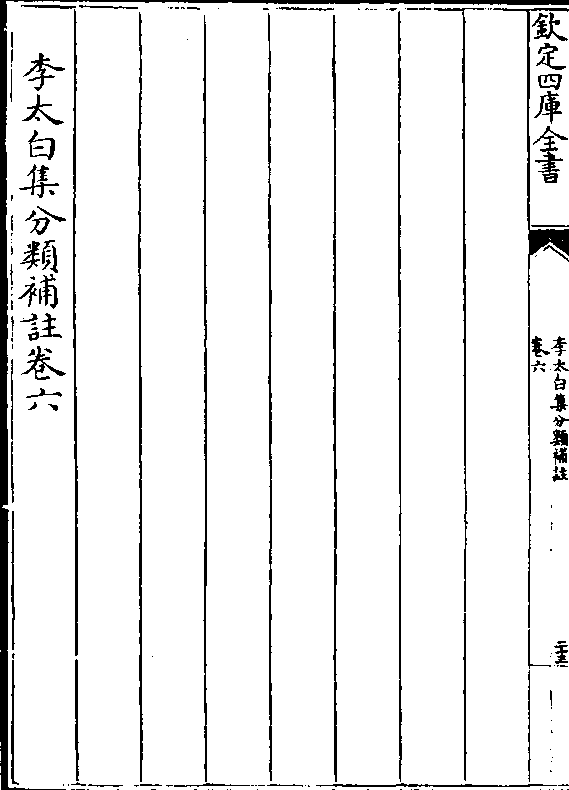 欽定四庫全書
李太白集分類補註
卷六
李太白集分類補註卷六